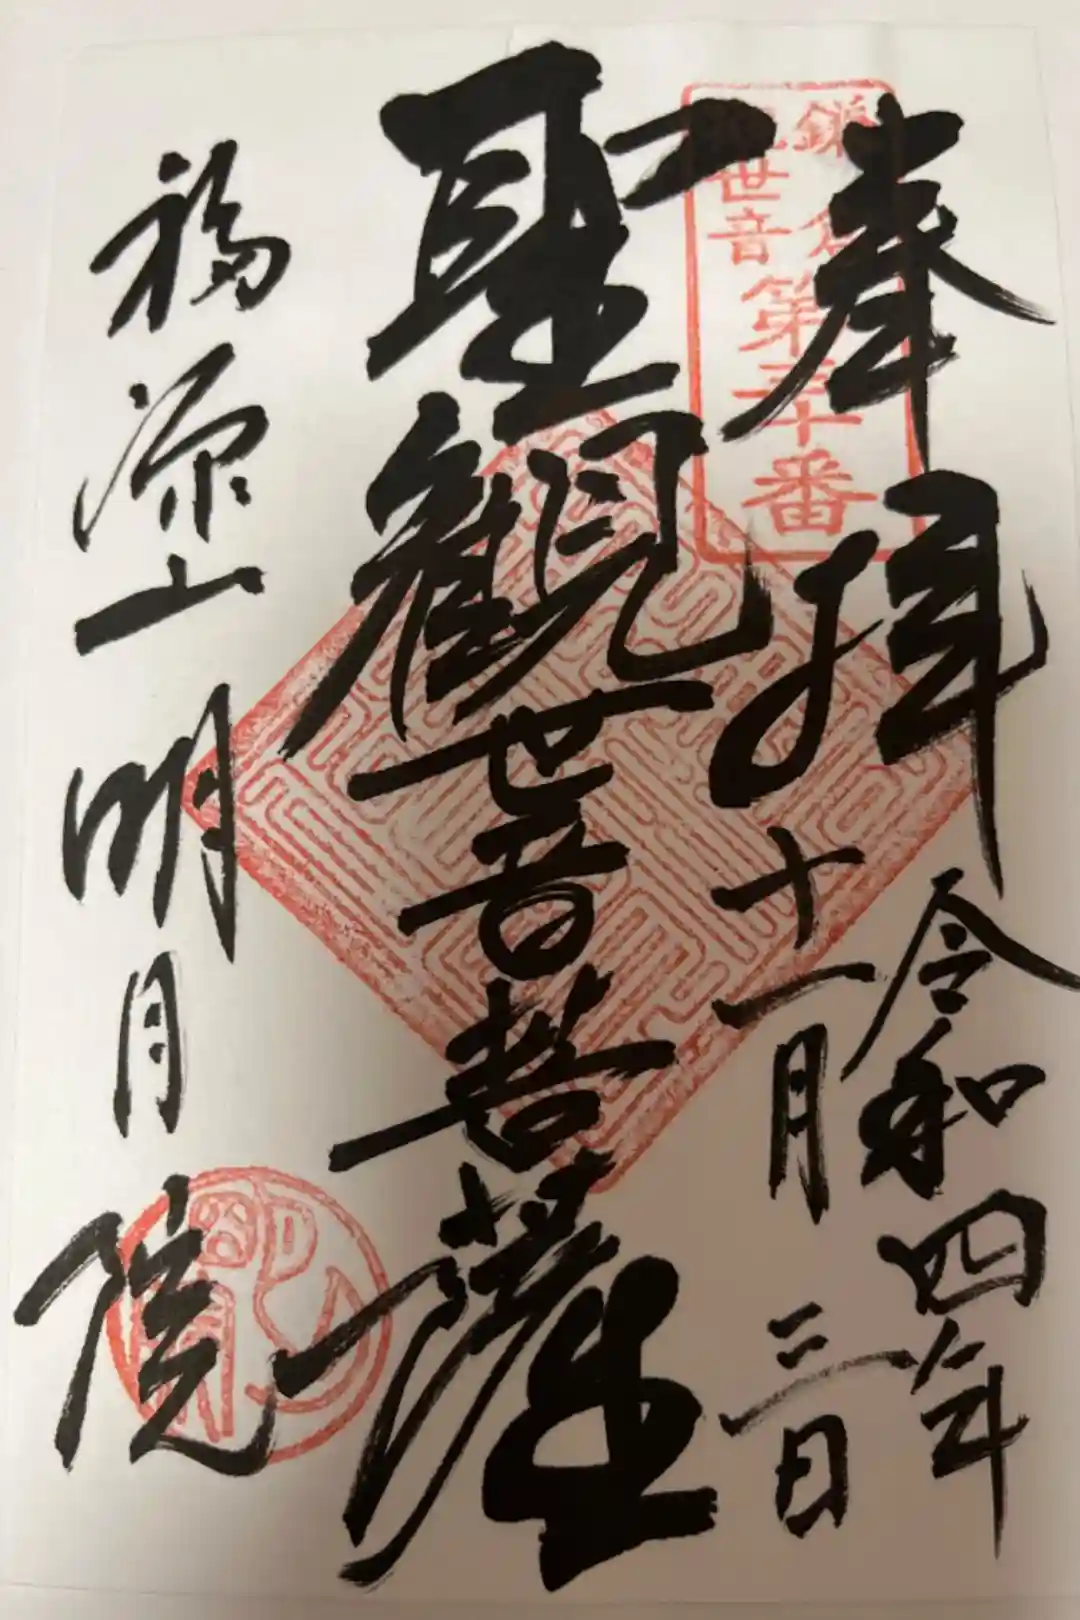 奉拝
令和四年
十一月三日
鎌倉
観世音
第三十番
聖観世音菩薩
福源山明月院